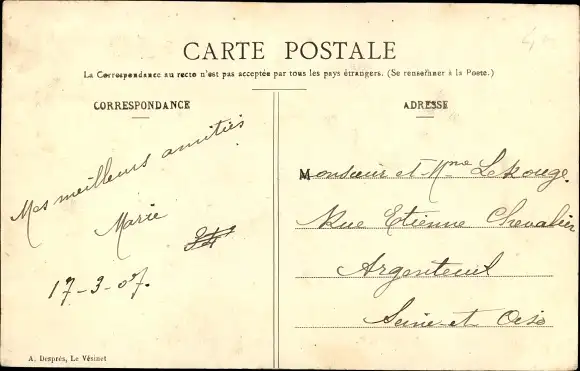 CARTE POSTALE
La Correspondance au recto n'est pas acceptée par tous les pays étrangers. (Se renseigner à la Poste.)
CORRESPONDANCE
Mes meilleurs amitiés
Marie
17-3-07.
A. Desprès, Le Vésinet
ADRESSE
Monsieur et Mme Lerouge.
Rue Etienne Chevalier
Argenteuil
Seine et Oise